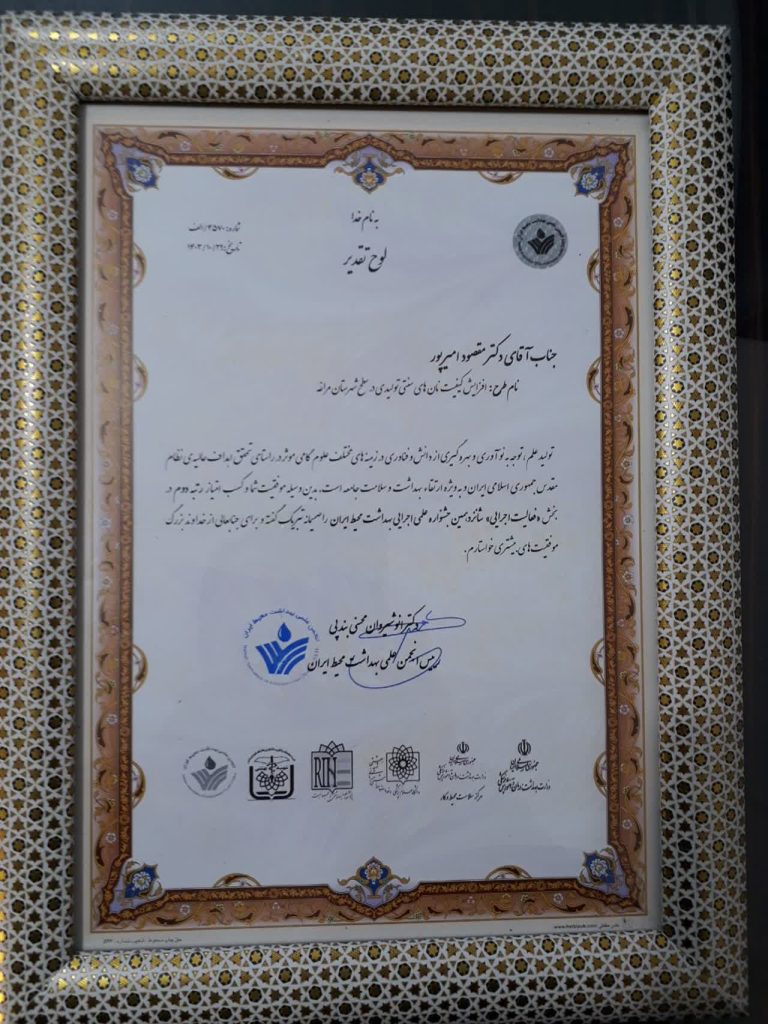 به نام خدا
لوح تقدیر
شماره: ۳۵۷۰/الف
تاریخ: ۱۴۰۳/۱۰/۲۶
جناب آقای دکتر مقصود امیرپور
نام طرح: افزایش کیفیت نان های سنتی تولیدی در سطح شهرستان مراغه
تولید علم، توجه به نوآوری و بهره گیری از دانش و فناوری در زمینه های مختلف علوم گامی موثر در راستای تحقق اهداف عالیه ی نظام
مقدس جمهوری اسلامی ایران و به ویژه ارتقاء بهداشت و سلامت جامعه است، بدین وسیله موفقیت شما و کسب امتیاز رتبه دوم در
بخش «فعالیت اجرایی» شانزدهمین جشنواره علمی اجرایی بهداشت محیط ایران را صمیمانه تبریک گفته و برای جنابعالی از خداوند بزرگ
موفقیت های بیشتری خواستارم.
دکتر انوشیروان محسنی بندپی
رئیس انجمن علمی بهداشت محیط ایران
انجمن علمی بهداشت محیط ایران
وزارت بهداشت، درمان و آموزش پزشکی
وزارت بهداشت، درمان و آموزش پزشکی
مرکز سلامت محیط و کار